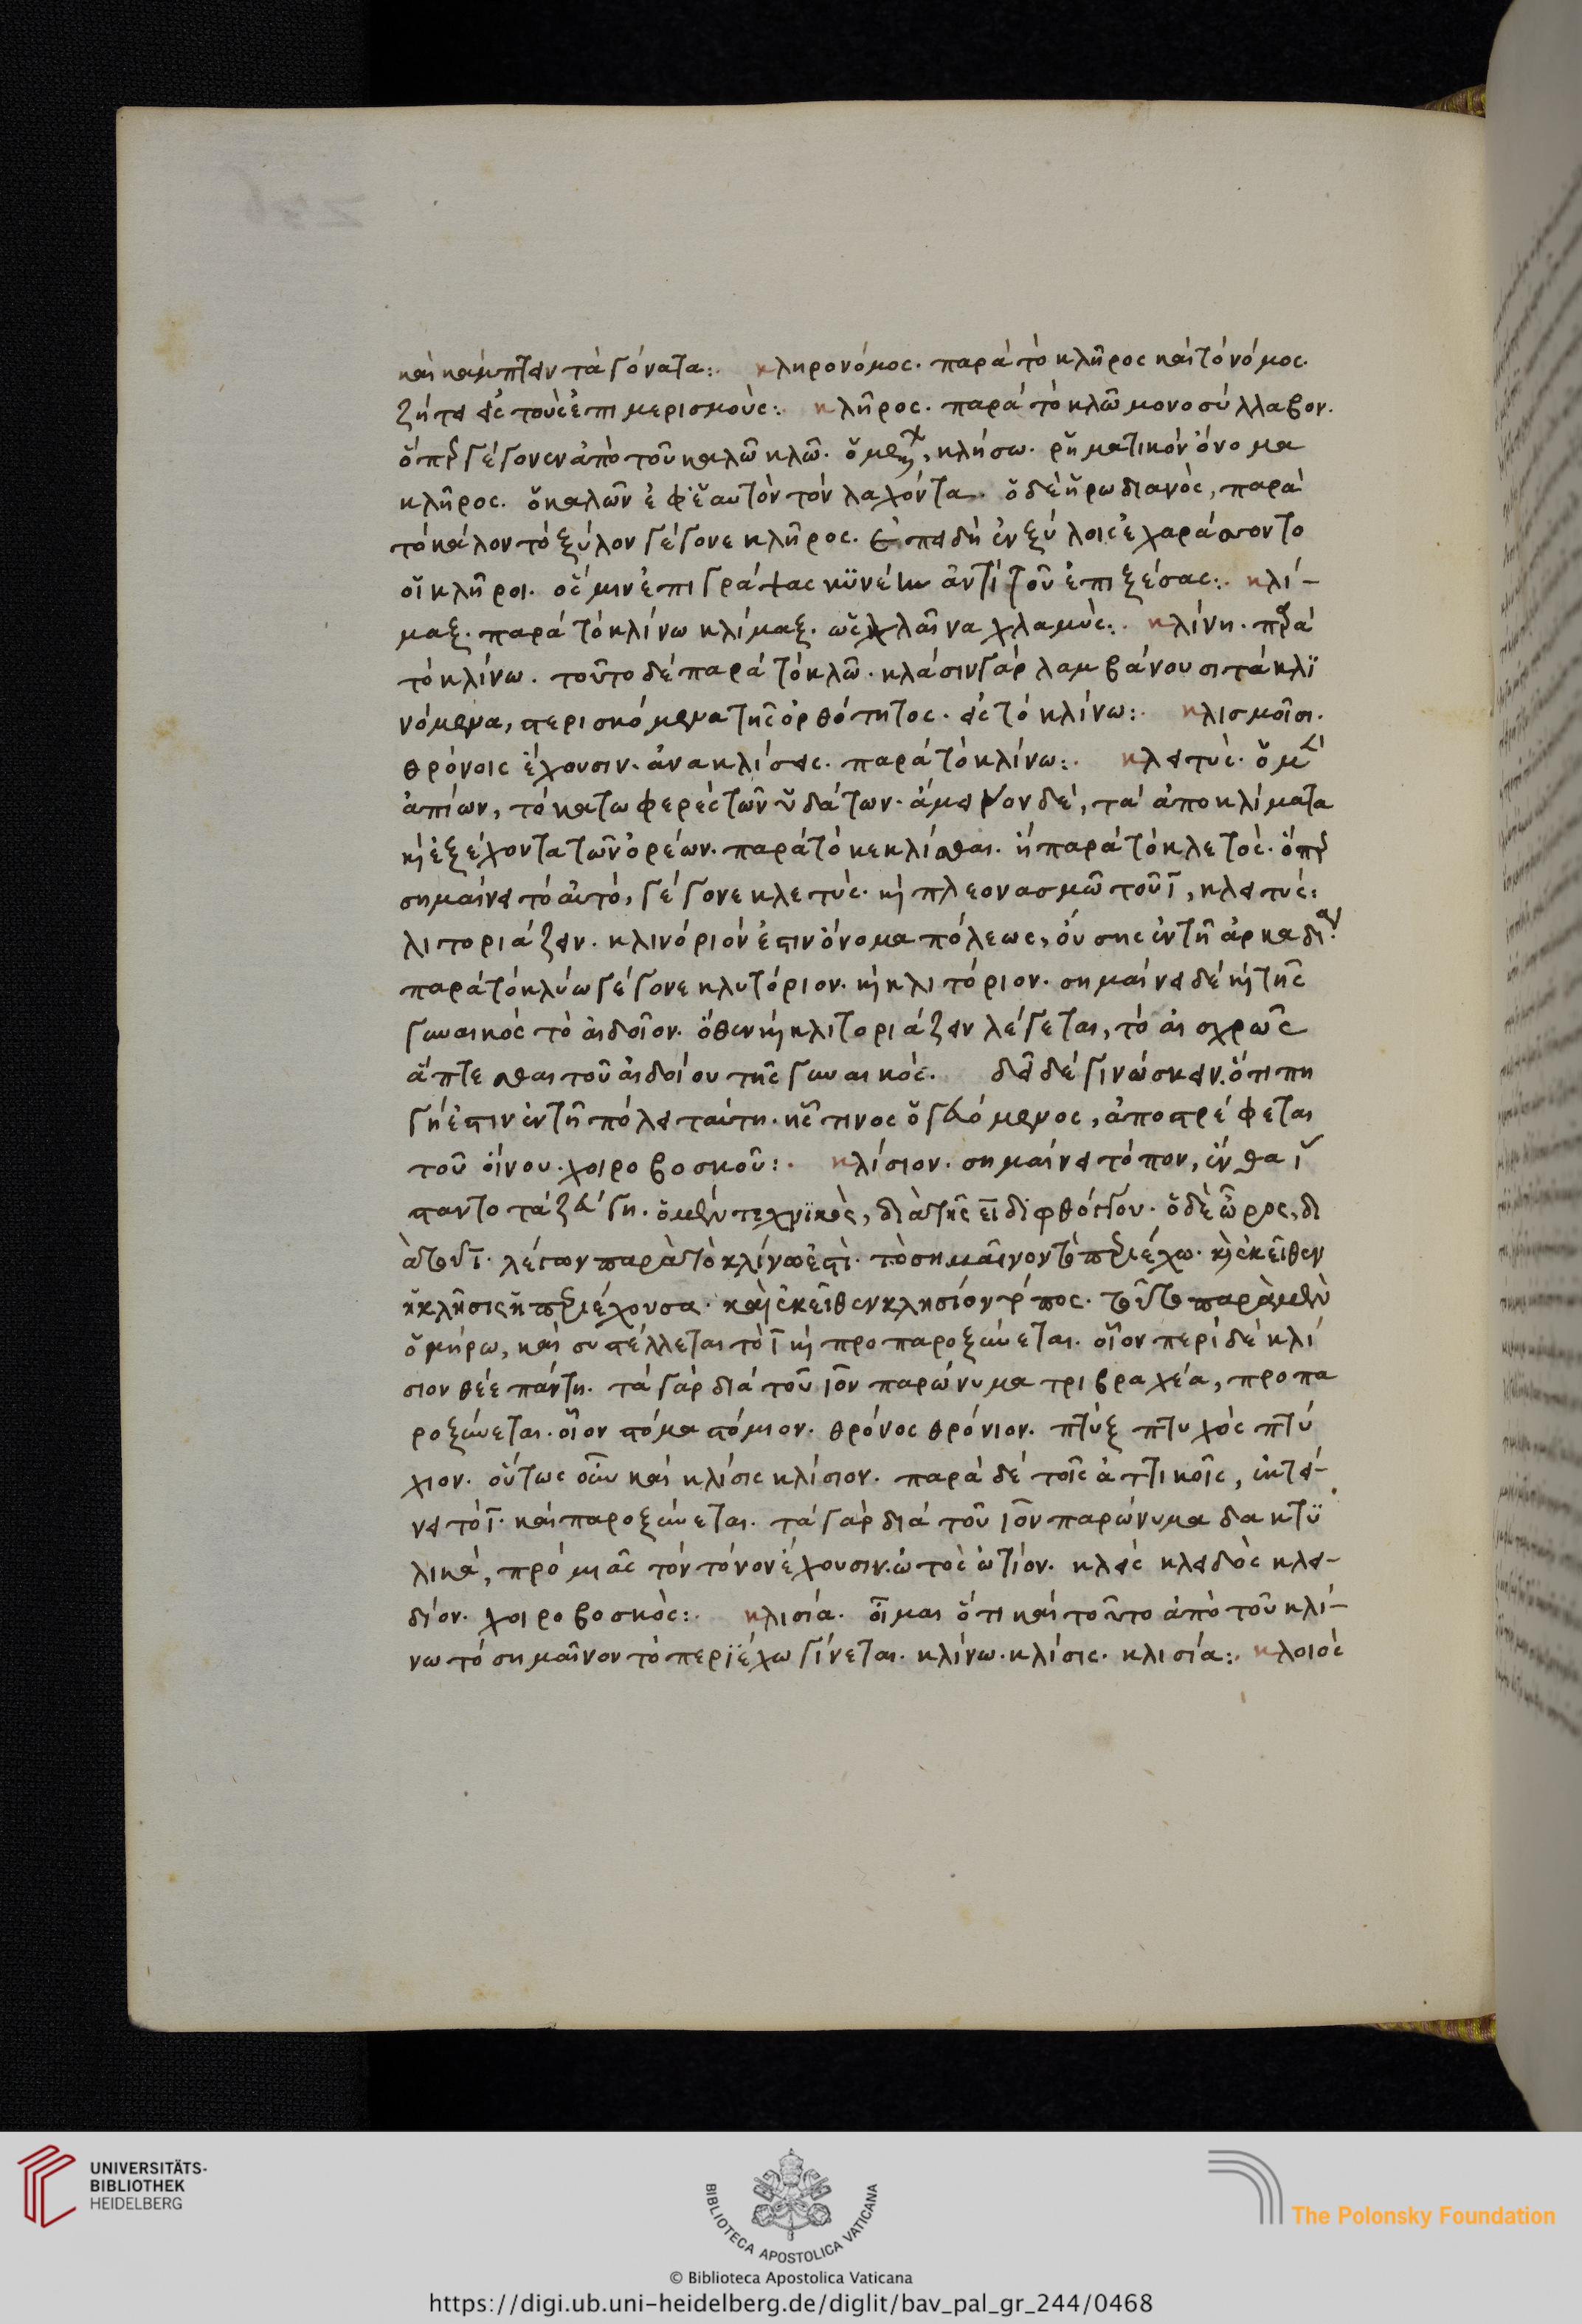 καὶ κάμπτειν τὰ γόνατα:. κληρονόμος. παρὰ τὸ κλῆρος καὶ τὸ νόμος.
ζήτει εἰς τοὺς ἐπιμερισμούς:. κλῆρος. παρὰ τὸ κλῶ μονοσύλλαβον.
ὅπερ γέγονεν ἀπὸ τοῦ καλῶ κλῶ. ὁ κλήσω. ῥηματικὸν ὄνομα
κλῆρος. ὁ καλῶν ἐφ' ἑαυτὸν τὸν λαχόντα. ὁ δὲ ἡρωδιανὸς, παρὰ
τὸ κάλον τὸ ξύλον γέγονε κλῆρος. ἐπειδὴ ἐν ξύλοις ἐχαράσσοντο
οἱ κλῆροι. ὅς μιν ἐπιγράψας κυνέην ἀντὶ τοῦ ἐπιξέσας:. κλί-
μαξ. παρὰ τὸ κλίνω κλίμαξ. ὡς χλαῖνα χλαμύς:. κλίνη. παρὰ
τὸ κλίνω. τοῦτο δὲ παρὰ τὸ κλῶ. κλάσιν γὰρ λαμβάνουσι τὰ κλι
νόμενα, στερισκόμενα τῆς ὀρθότητος. εἰς τὸ κλίνω:. κλισμοῖσι.
θρόνοις ἔχουσιν. ἀνακλίσεις. παρὰ τὸ κλίνω:. κλειτύς. ὁ μὲν
ἀπίων, τὸ κατωφερὲς τῶν ὑδάτων. ἄμεινον δὲ, τὰ ἀποκλίματα
καὶ ἐξέχοντα τῶν ὀρέων. παρὰ τὸ κεκλίσθαι. ἢ παρὰ τὸ κλετός. ὅπερ
σημαίνει τὸ αὐτό, γέγονε κλετύς. καὶ πλεονασμῷ τοῦ ῑ, κλειτύς:
λιτοριάζειν. κλινόριόν ἐστιν ὄνομα πόλεως, οὔσης ἐν τῇ ἀρκαδίαν.
παρὰ τὸ κλύω γέγονε κλυτόριον. καὶ κλιτόριον. σημαίνει δὲ καὶ τῆς
γυναικὸς τὸ αἰδοῖον. ὅθεν καὶ κλιτοριάζειν λέγεται, τὸ αἰσχρῶς
ἅπτεσθαι τοῦ αἰδοίου τῆς γυναικός. δεῖ δὲ γινώσκειν. ὅτι πη
γή ἐστιν ἐν τῇ πόλει ταύτῃ. ἧς τινος ὁ γευόμενος, ἀποστρέφεται
τοῦ οἴνου. χοιροβοσκοῦ:. κλίσιον. σημαίνει τόπον, ἔνθα ἵ
σταντο τὰ ζεύγη. ὁ μὲν τεχνικὸς, διὰ τῆς ε̄ῑ διφθόγγου. ὁ δὲ ὦρος, δι
ὰ τοῦ ῑ. λέγων παρὰ τὸ κλίνω ἐστὶ. τὸ σημαῖνον τὸ περιέχω. καὶ ἐκεῖθεν
ἡ κλῆσις ἡ περιέχουσα. καὶ ἐκεῖθεν κλησίον τόπος. τοῦτο παρὰ μὲν
ὁμήρω, καὶ συστέλλεται τὸ ῑ καὶ προπαροξύνεται. οἷον περὶ δὲ κλί
σιον θέε πάντη. τὰ γὰρ διὰ τοῦ ῑον παρώνυμα τριβραχέα, προπα
ροξύνεται. οἷον στόμα στόμιον. θρόνος θρόνιον. πτὺξ πτυχὸς πτύ
χιον. οὕτως οὖν καὶ κλίσις κλίσιον. παρὰ δὲ τοῖς ἀττικοῖς, ἐκτεί-
νει τὸ ῑ. καὶ παροξύνεται. τὰ γὰρ διὰ τοῦ ῑον παρώνυμα δακτυ
λικὰ, πρὸ μιᾶς τὸν τόνον ἔχουσιν. ὠτὸς ὠτίον. κλεὶς κλειδὸς κλει-
δίον. χοιροβοσκὸς:. κλισία. οἶμαι ὅτι καὶ τοῦτο ἀπὸ τοῦ κλί-
νω τὸ σημαῖνον τὸ περιέχω γίνεται. κλίνω. κλίσις. κλισία:. κλοιὸς
UNIVERSITÄTS-
BIBLIOTHEK
HEIDELBERG
BIBLIOTECA APOSTOLICA VATICANA
© Biblioteca Apostolica Vaticana
The Polonsky Foundation
https://digi.ub.uni-heidelberg.de/diglit/bav_pal_gr_244/0468